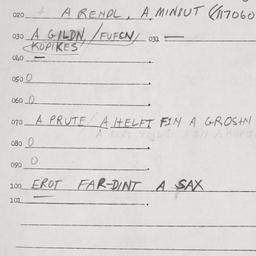 020 A RENDL, A MINIUT (117060
030 A GILDN, /FUFCN/ 031 —
KOPIKES
040 —
050 0
060 0
070 A PRUTE/ A HELFT FIN A GROSHN
080 0
090 0
100 EROT FAR-DINT A SAX
101